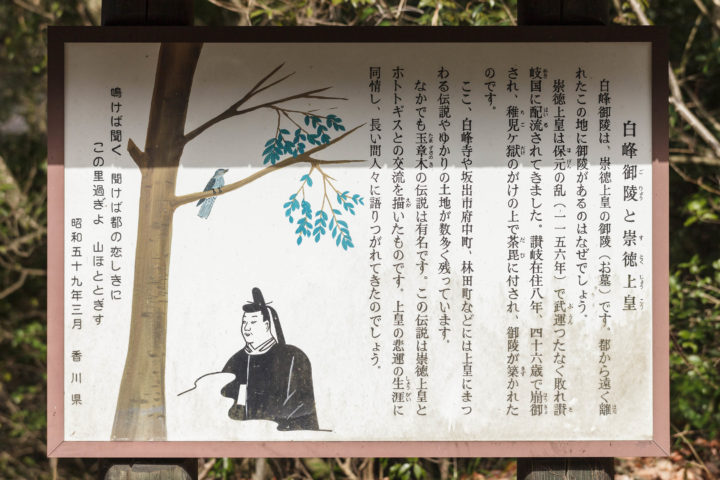 白峰御陵と崇徳上皇
白峰御陵は、崇徳上皇の御陵（お墓）です。都から遠く離
れたこの地に御陵があるのはなぜでしょう。
崇徳上皇は保元の乱（一一五六年）で武運つたなく敗れ讃
岐国に配流されてきました。讃岐在住八年、四十六歳で崩御
され、稚児ケ獄のがけの上で荼毘に付され、御陵が築かれた
のです。
ここ、白峰寺や坂出市府中町、林田町などには上皇にまつ
わる伝説やゆかりの土地が数多く残っています。
なかでも玉章木の伝説は有名です。この伝説は崇徳上皇と
ホトトギスとの交流を描いたものです。上皇の悲運の生涯に
同情し、長い間人々に語りつがれてきたのでしょう。
鳴けば聞く　聞けば都の恋しきに
この里過ぎよ　山ほととぎす
昭和五十九年三月　香川県